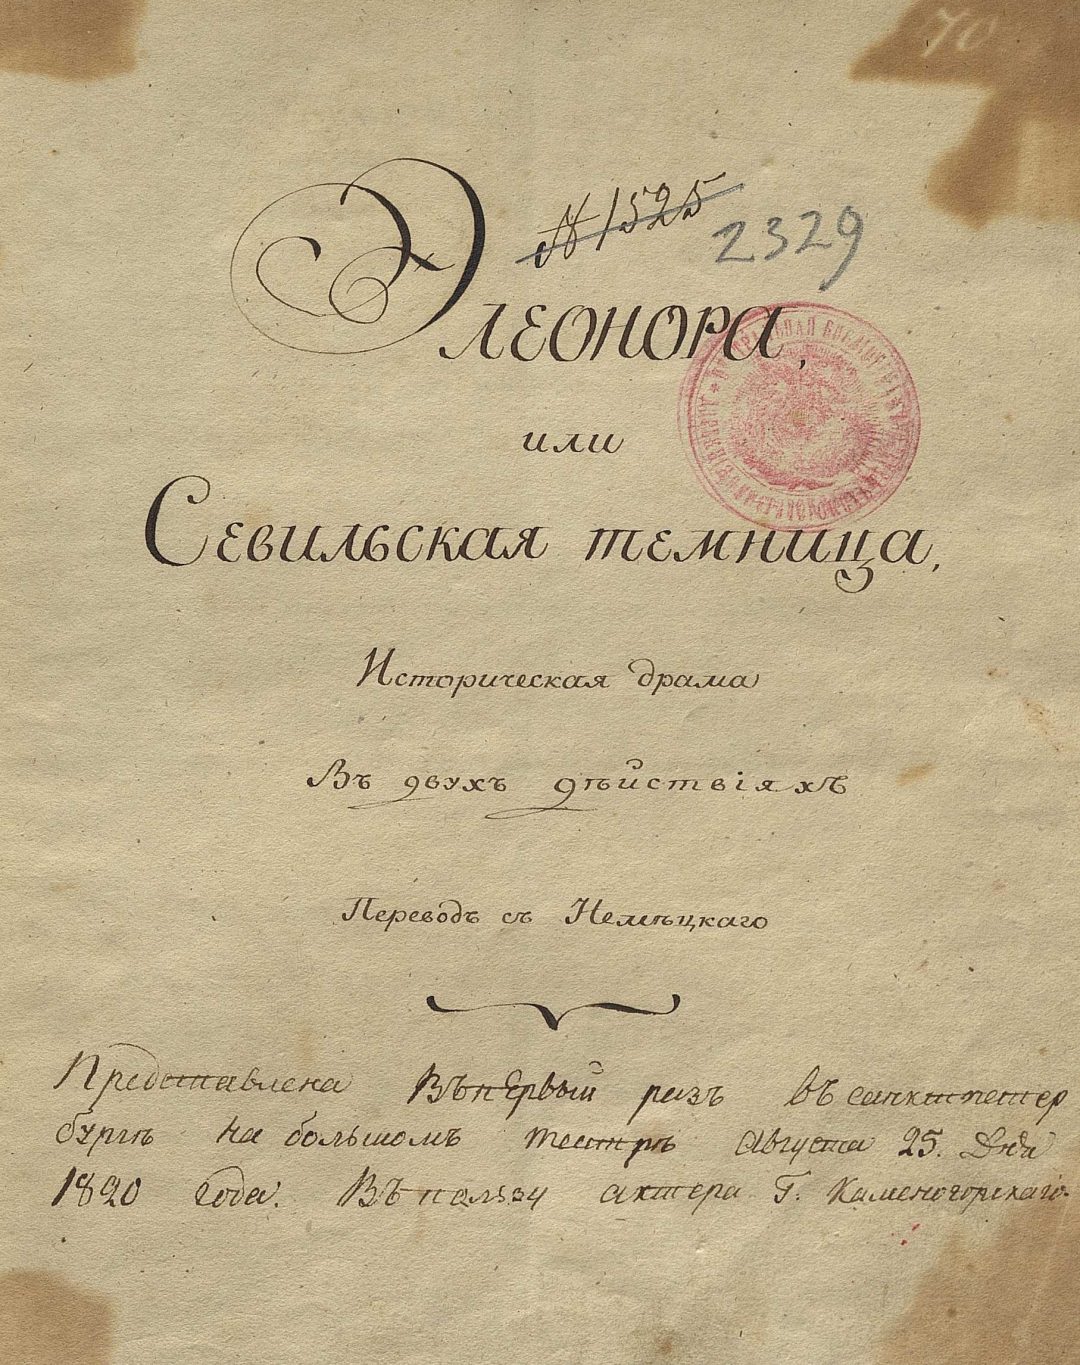 70
№ 1525
2329
Элеонора,
или
Севильская темница,
Историческая драма
Въ двухъ дѣйствіяхъ
Переводъ съ Немѣцкаго
Представлена Въпервый разъ въ санктпетер
бургѣ на большомъ театрѣ Августа 25. Дня
1820 года. Въ пользу актера Г. Каменогорскаго.